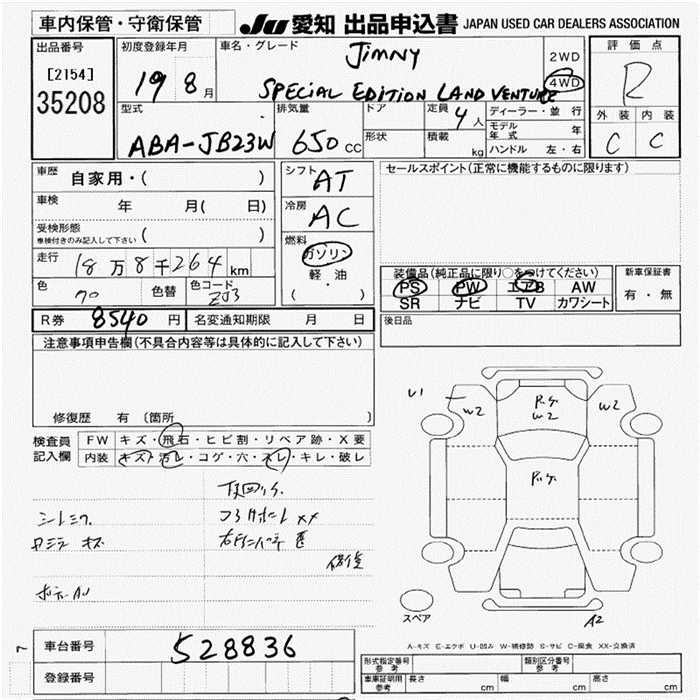 車内保管・守衛保管
JU 愛知 出品申込書 JAPAN USED CAR DEALERS ASSOCIATION
出品番号
[2154]
35208
初度登録年月
19 8月
車名・グレード
Jimny
SPECIAL EDITION LAND VENTURE
2WD
4WD
評価点
R
外装 内装
C C
型式
ABA-JB23W
排気量
650 cc
ドア
形状
定員 4人
積載 kg
ディーラー・並行
モデル年式 年
ハンドル 左・右
車歴 自家用・( )
車検 年 月( 日)
受検形態
車検付きのみ記入して下さい ( )
走行 18万8千264 km
色 色替 色コード ZJ3
シフト AT
冷房 AC
燃料
ガソリン
軽・油
( )
セールスポイント(正常に機能するものに限ります)
装備品(純正品に限り○をつけてください)
PS PW エアB AW
SR ナビ TV カワシート
新車保証書
有・無
R券 8540円 名変通知期限 月 日
後日品
注意事項申告欄(不具合内容等は具体的に記入して下さい)
修復歴 有 〔箇所 〕
検査員記入欄
FW キズ・飛石・ヒビ割・リペア跡・X要
内装 キズ・汚レ・コゲ・穴・スレ・キレ・破レ
U1
W2
W2
W2
スペア
A2
A-キズ E-エクボ U-凹み W-補修跡 S-サビ C-腐食 XX-交換済
車台番号 528836
登録番号
形式指定番号 参考
類別区分番号 参考
車庫証明用 参考 長さ cm 幅 cm 高さ cm